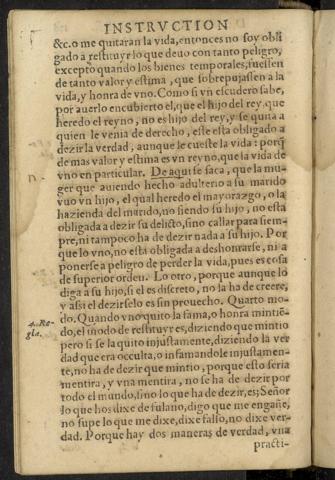 INSTRVCTION
&c.o me quitaran la vida, entonces no soy obli
gado à restituyr lo que deuo con tanto peligro,
excepto quando los bienes temporales, fuessen
de tanto valor y estima, que sobrepujassen a la
vida, y honra de vno. Como si vn escudero sabe,
por auerlo encubierto el, que el hijo del rey, que
heredo el reyno, no es hijo del rey, y se quita a
quien le venia de derecho, este està obligado a
dezir la verdad, aunque le cueste la vida: porq̃
de mas valor y estima es vn reyno, que la vida de
vno en particular. De aqui se saca, que la mu-
ger que auiendo hecho adulterio a su marido
vuo vn hijo, el qual heredo el mayorazgo, o la
hazienda del marido, no siendo su hijo, no està
obligada a dezir su delicto, sino callar para siem-
pre, ni tampoco ha de dezir nada a su hijo. Por
que lo vno, no està obligada a deshonrarse, ni a
ponerse a peligro de perder la vida, pues es cosa
de superior orden. Lo otro, porque aunque lo
diga a su hijo, si el es discreto, no la ha de creer,
y assi el dezirselo es sin prouecho. Quarto mo-
do. Quando vno quito la fama, o honra mintiẽ-
do, el modo de restituyr es, diziendo que mintio
4. Re-
gla.
pero si se la quito injustamente, diziendo la ver
dad que era occulta, o infamandole injustamen-
te, no ha de dezir que mintio, porque esto seria
mentira, y vna mentira, no se ha de dezir por
todo el mundo, sino lo que ha de dezir, es; Señor
lo que hos dixe de fulano, digo que me engañe,
no supe lo que me dixe, dixe falso, no dixe ver-
dad. Porque hay dos maneras de verdad, vna
practi-